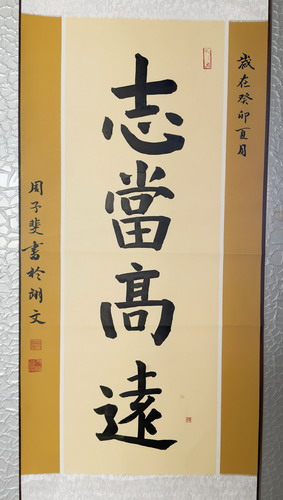 歲在癸卯夏月
志當高遠
周子斐書於湖文